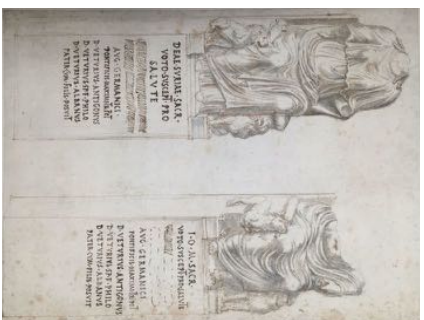 DEAE·SVRIAE·SACR·
VOTO·SVSCEPT·PRO
SALVTE
AVG·GERMANICI·
PONTIFICIS·MAXIMI
D·VETVRIVS·ANTIGONVS
D·VETVRIVS·SPF·PHILO
D·VETVRIVS·ALBANVS
PATER·CVM·FILIIS·POSVIT
I·O·M·SACR·
VOTO·SVSCEPT·PRO·SALVTE
AVG·GERMANICI
PONTIFICIS·MAXIMI
D·VETVRIVS·ANTIGONVS
D·VETVRIVS·SPF·PHILO
D·VETVRIVS·ALBANVS
PATER·CVM·FILIIS·POSVIT